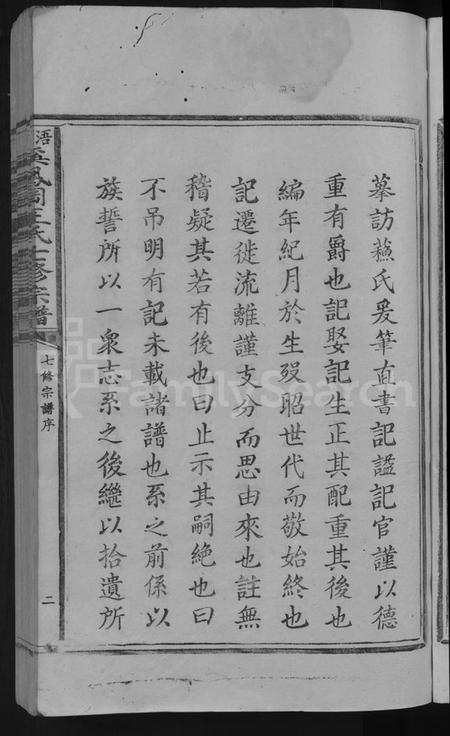 摹訪蘓氏爰筆直書記謚記官謹以德
重有爵也記娶記生正其配重其後也
編年紀月於生歿昭世代而敬始終也
記遷徙流離謹支分而思由來也註無
稽疑其若有後也曰止示其嗣絶也曰
不吊明有記未載諸譜也系之前係以
族誓所以一衆志系之後繼以拾遺所
王氏七修宗譜
七修宗譜序
二
FamilySearch